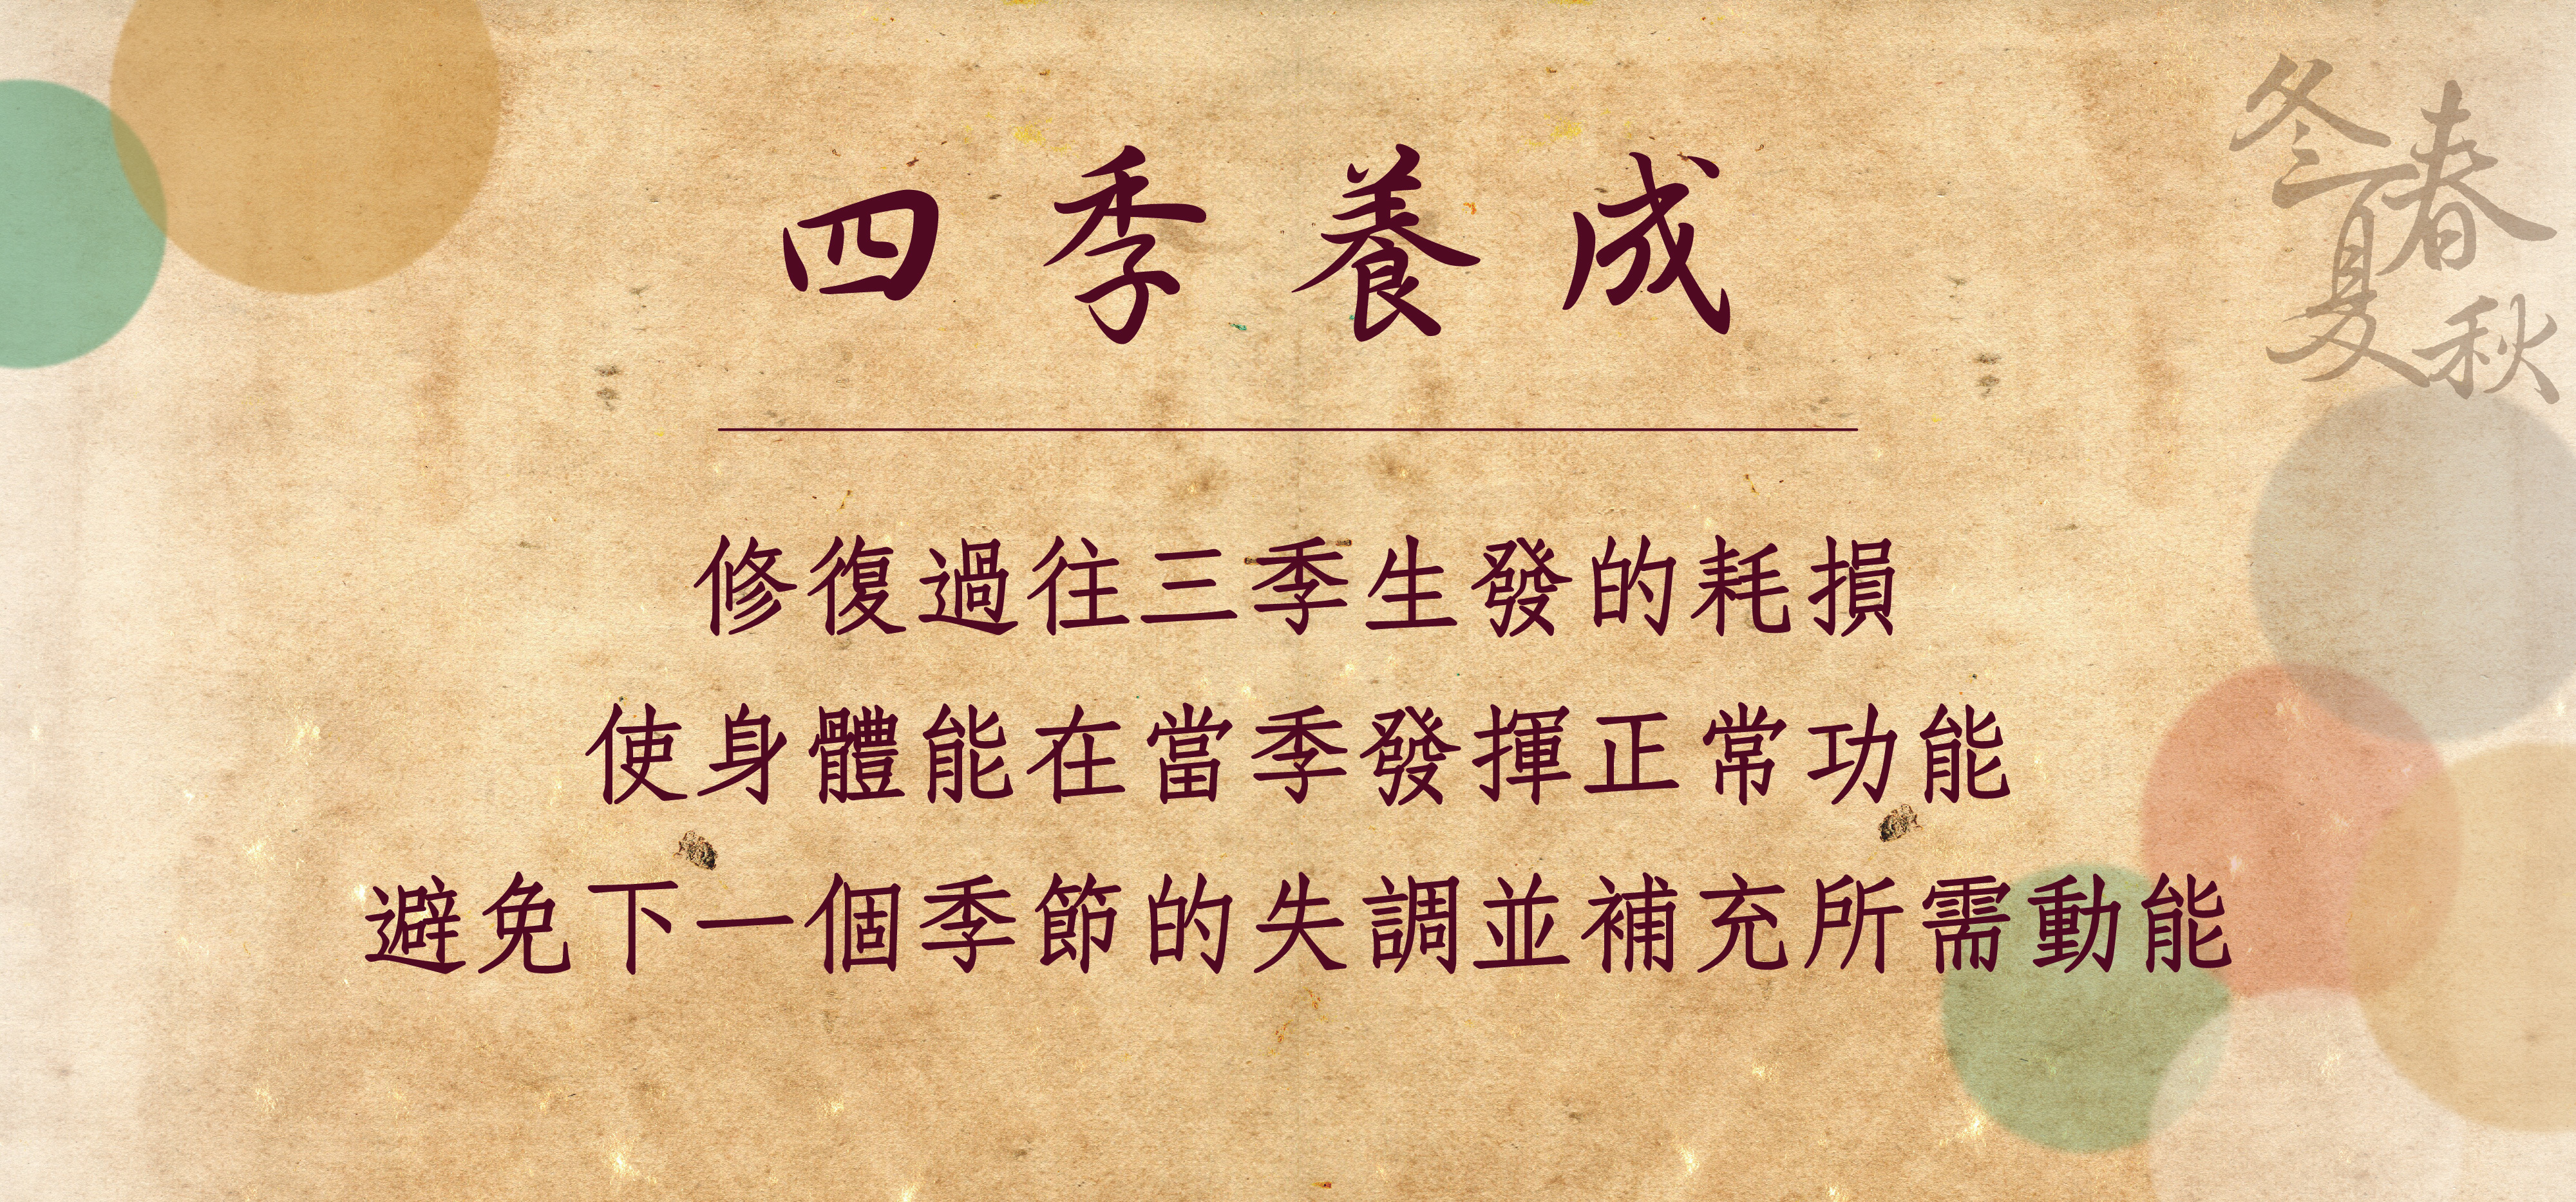 四季養成
修復過往三季生發的耗損
使身體能在當季發揮正常功能
避免下一個季節的失調並補充所需動能
春夏秋冬